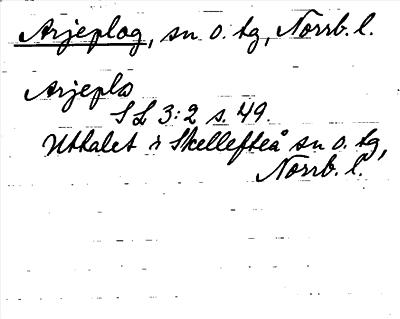 Arjeplog, sn o. tg, Norrb. l.
Arjeplo
S L 3:2 s. 49.
Uttalet i Skellefteå sn o. tg,
Norrb. l.